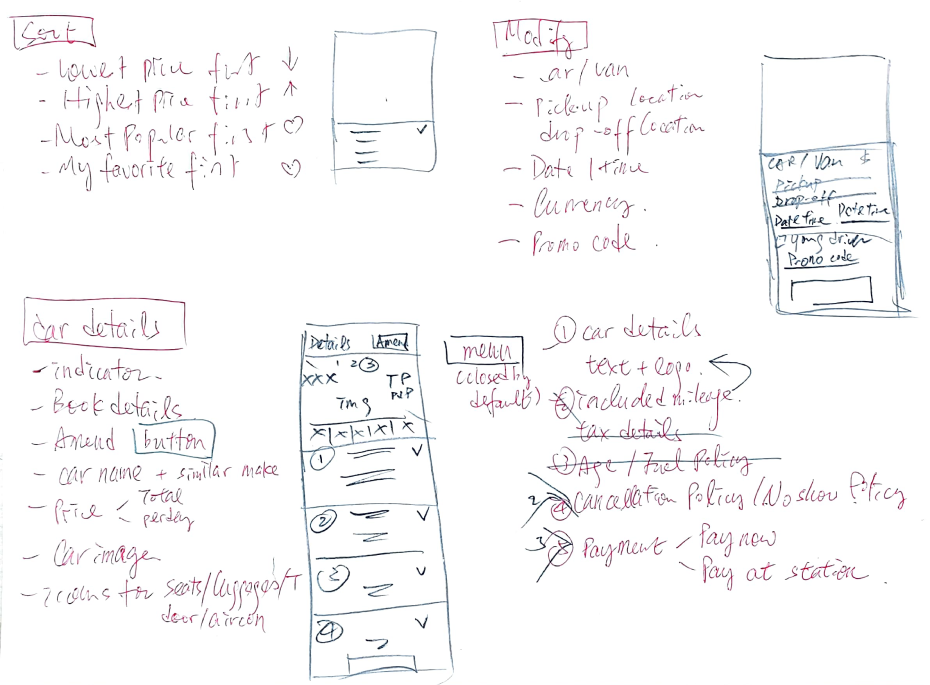 Sort
- Lowest price first ↓
- Highest price first ↑
- Most Popular first ♡
- My favorite first ♡
Modify
- Car/van
- Pickup location
drop-off location
- Date/time
- Currency.
- Promo code.
CAR/Van $
Pickup
Drop-off
Date time Date time
□ young driver
Promo code
car details
- indicator.
- Book details
- Amend button
- car name + similar make
- Price < Total
per day
- Car image
- icons for seats/luggages/T
door/aircon
Details Amend
1 2 ③
XXX TP
img
X|X|X|X|X
①
②
③
④
menu
(closed by
default)
① car details
text + logo.
② included mileage.
tax details
③ Age/Fuel Policy
2 ④ Cancellation Policy/No show Policy
3 ⑤ Payment - Pay now
- Pay at station.